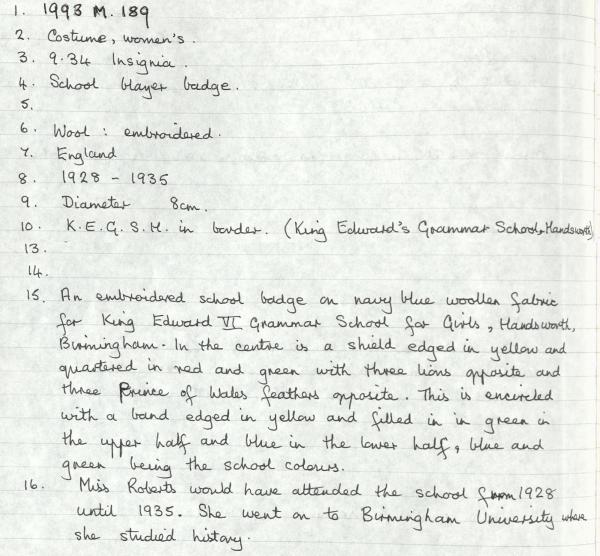 1. 1993 M. 189
2. Costume, women's.
3. 9.34 Insignia.
4. School blazer badge.
5.
6. Wool : embroidered.
7. England
8. 1928 - 1935
9. Diameter 8cm.
10. K.E.G.S.H. in border. (King Edward's Grammar School, Handsworth)
13.
14.
15. An embroidered school badge on navy blue woollen fabric
for King Edward VI Grammar School for Girls, Handsworth,
Birmingham. In the centre is a shield edged in yellow and
quartered in red and green with three lions opposite and
three Prince of Wales feathers opposite. This is encircled
with a band edged in yellow and filled in in green in
the upper half and blue in the lower half, blue and
green being the school colours.
16. Miss Roberts would have attended the school from 1928
until 1935. She went on to Birmingham University where
she studied history.